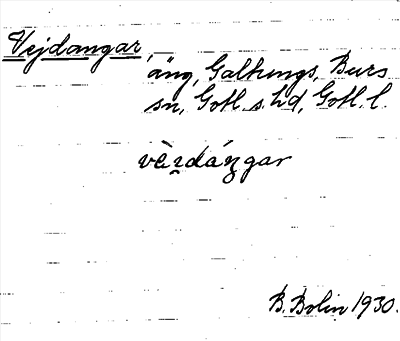 Vejdangar,
äng, Galkungs, Burs
sn, Gotl. s. hd, Gotl. l.
vèı̯dáŋgar
B. Bolin 1930.